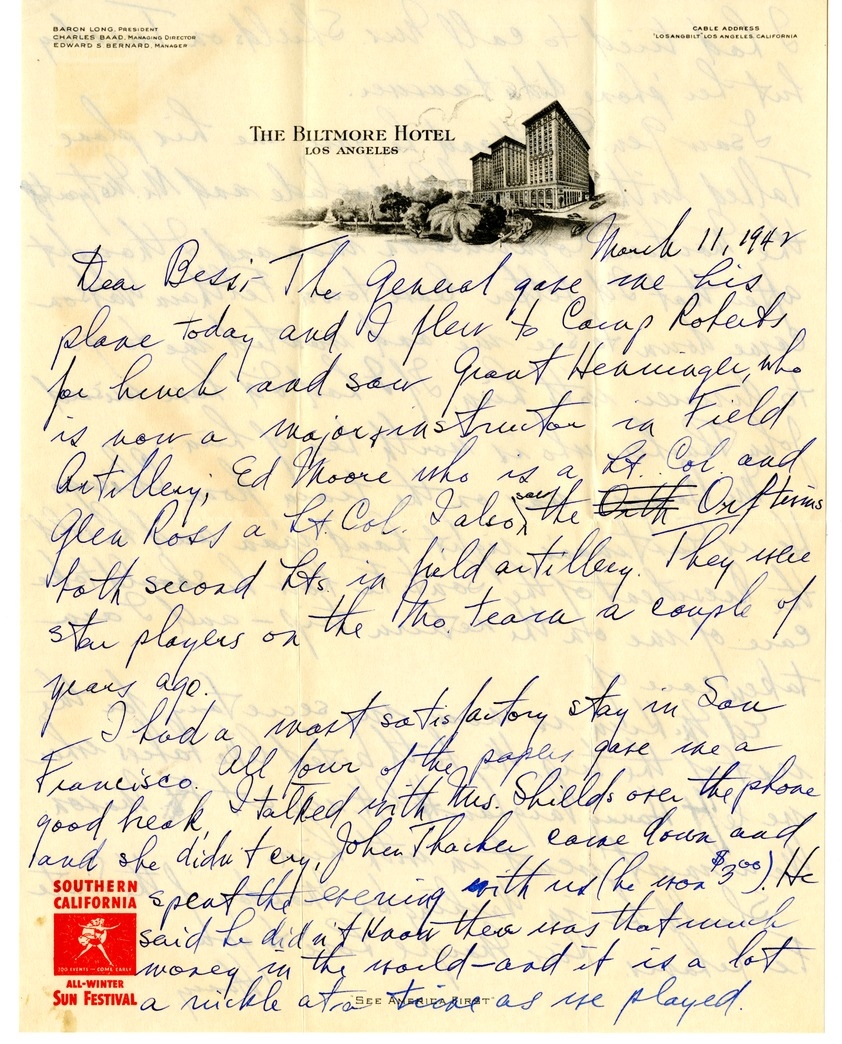 BARON LONG, PRESIDENT
CHARLES BAAD, MANAGING DIRECTOR
EDWARD S BERNARD, MANAGER
CABLE ADDRESS
"LOSANGBILT" LOS ANGELES, CALIFORNIA
THE BILTMORE HOTEL
LOS ANGELES
March 11, 1942
Dear Bess;- The General gave me his
plane today and I flew to Camp Roberts
for lunch and saw Grant Henninger, who
is now a major & instructor in Field
Artillery; Ed Moore who is a Lt. Col. and
Glen Ross a Lt. Col. I also saw the Orth Orf twins
both second Lts. in field artillery. They were
star players on the Mo. team a couple of
years ago.
I had a most satisfactory stay in San
Francisco. All four of the papers gave me a
good break, I talked with Mrs. Shields over the phone
and she didn't cry, John Thacher came down and
spent the evening with us (he won $3.00). He
said he didn't know there was that much
money in the world - and it is a lot
a nickle at a time as we played.
SOUTHERN
CALIFORNIA
200 EVENTS - COME EARLY
ALL-WINTER
SUN FESTIVAL
"SEE AMERICA FIRST"